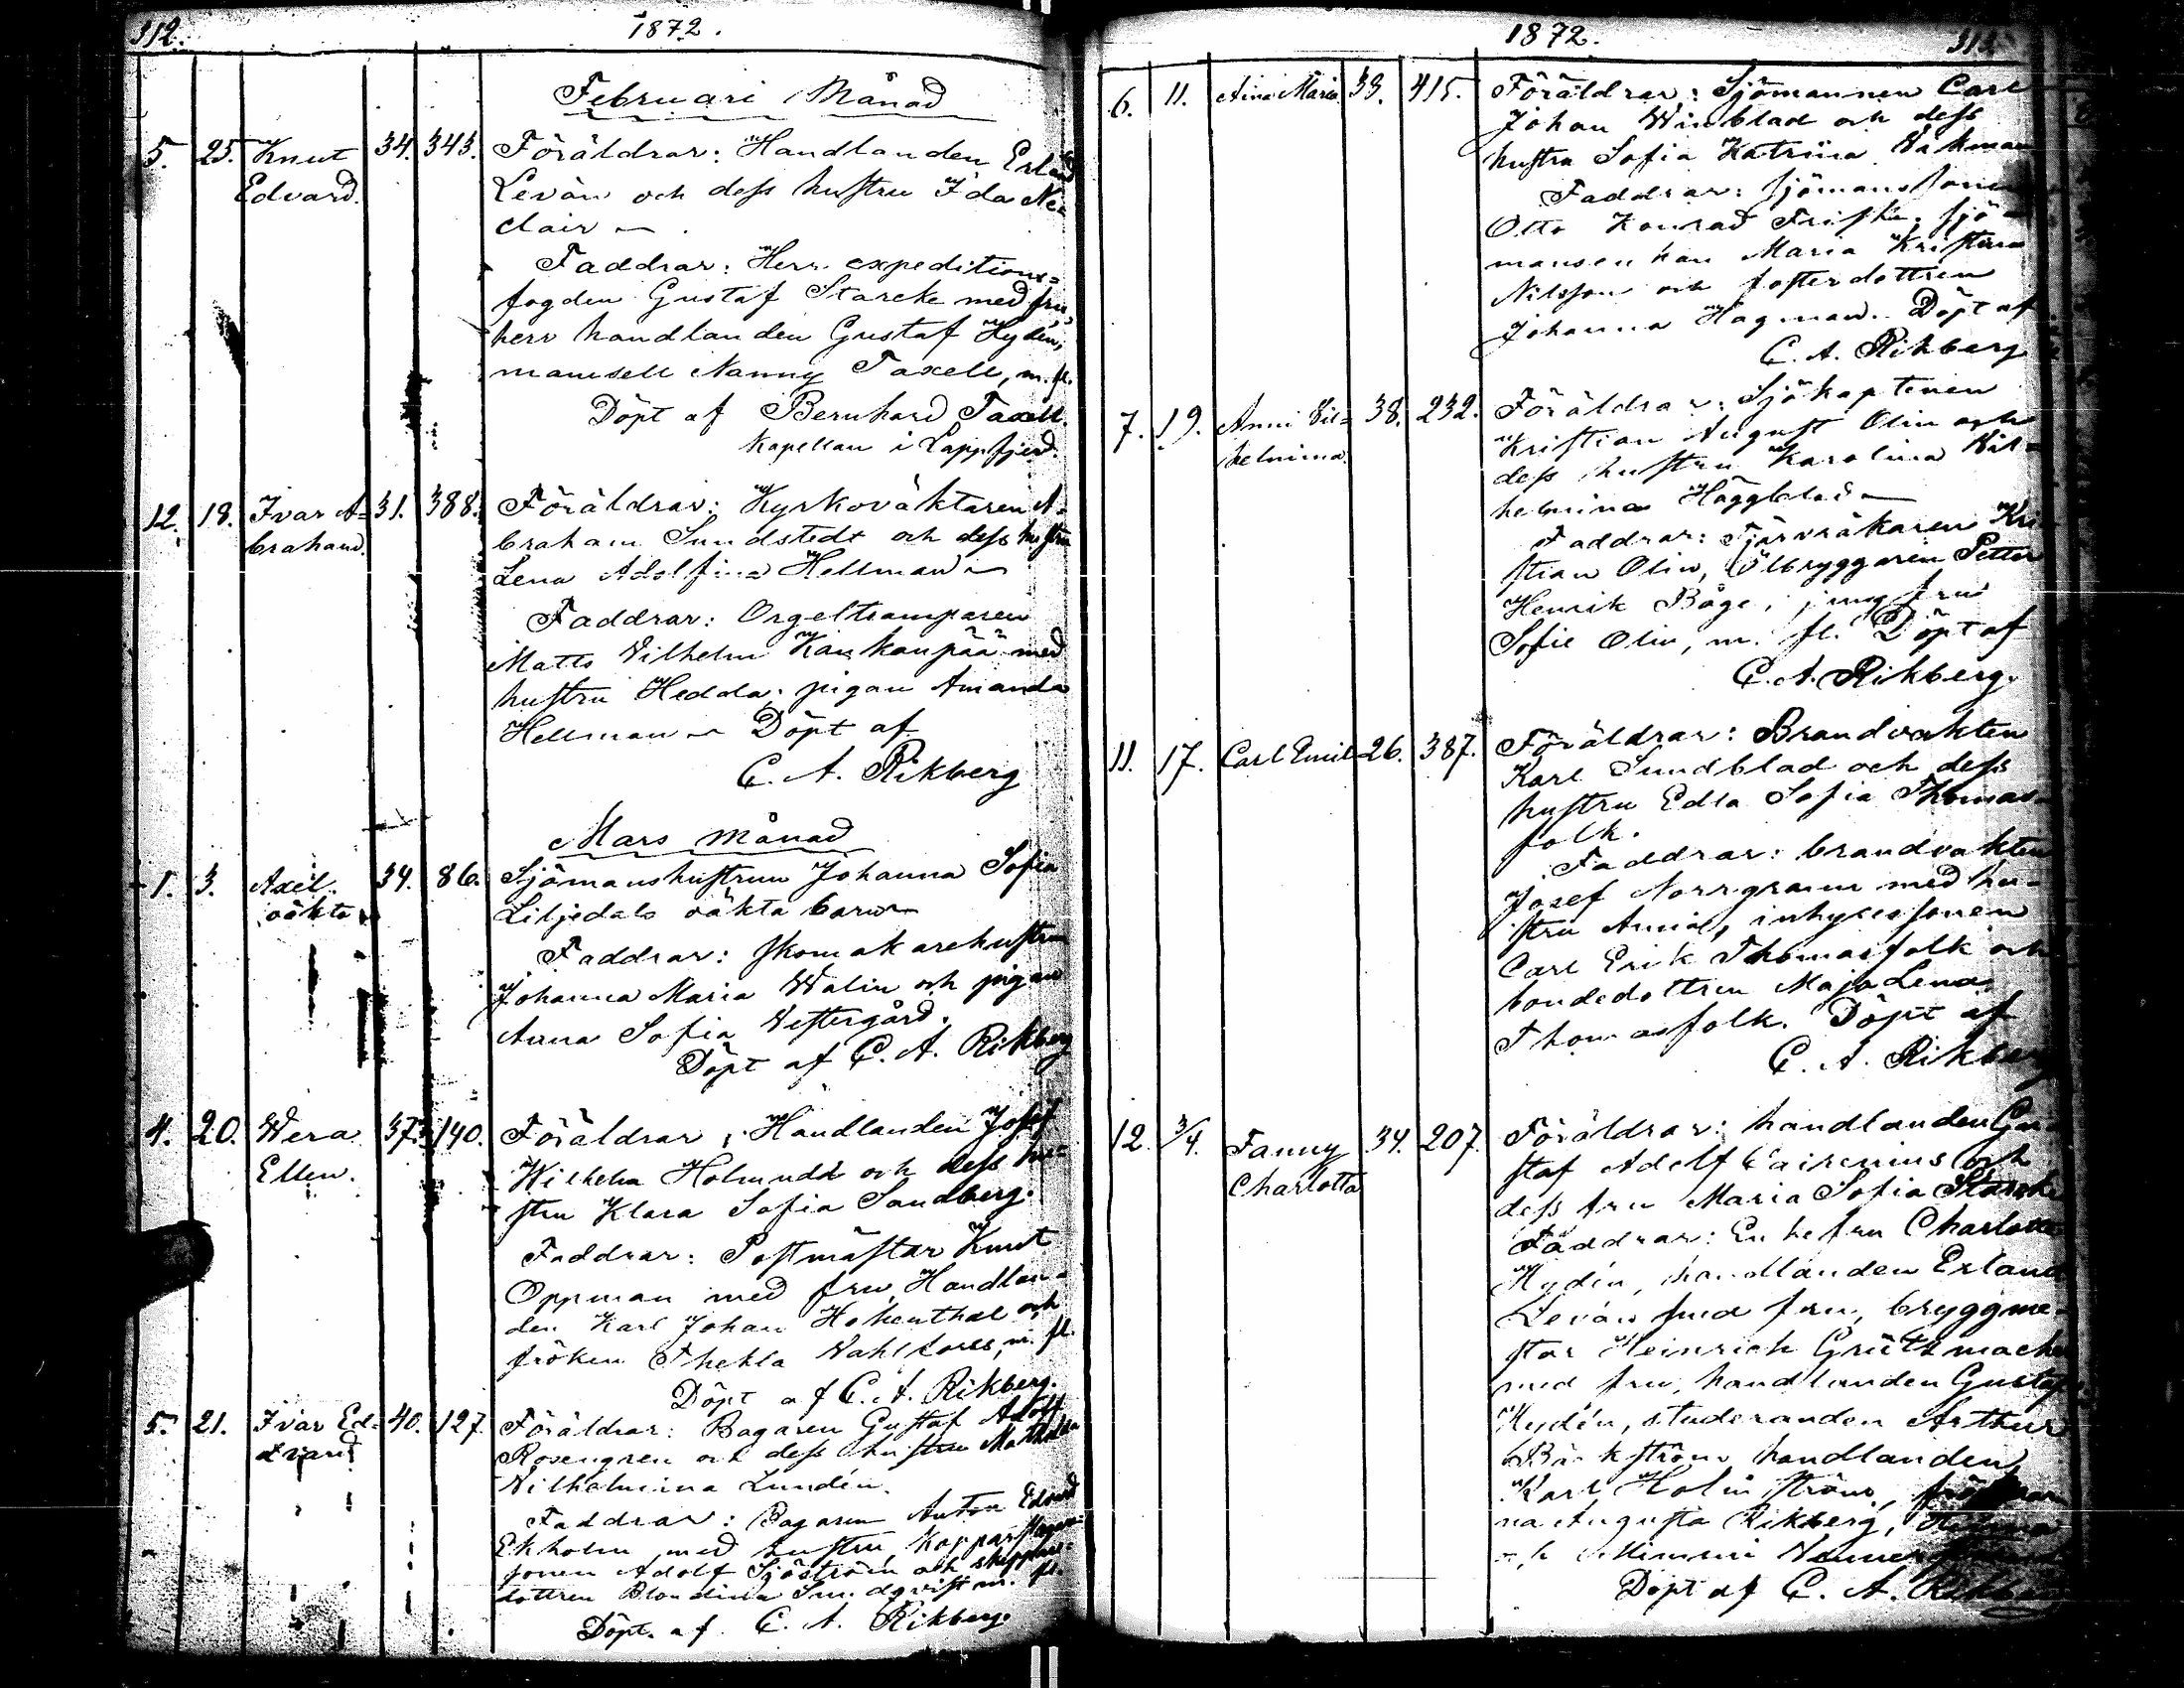 312.
1872.
Februari Månad
5. 25. Knut 34. 343. Föräldrar: Handlanden Erland
Edvard. Levån och dess hustru Ida Ne=
clair
Faddrar: Herr expeditions=
fogden Gustaf Starcke med fru,
herr handlanden Gustaf Hydén,
mamsell Nanny Taxell, m. fl.
Döpt af Bernhard Taxell.
Kapellan i Lappfjerd.
12. 18. Ivar A= 31. 388. Föräldrar: Kyrkoväktaren A=
braham. braham Sundstedt och dess hustru
Lena Adolfina Hellman
Faddrar: Orgeltramparen
Matts Vilhelm Kankanpää med
hustru Hedda, pigan Amanda
Hellman Döpt af
C. A. Rikberg
Mars månad
1. 3. Axel. 34. 86. Sjömanshustrun Johanna Sofia
oäkta Liljedals oäkta barn
Faddrar: skomakarehustrun
Johanna Maria Walin och pigan
Anna Sofia Vestergård.
Döpt af C. A. Rikberg
4. 20. Wera 37. 140. Föräldrar: Handlanden Josef
Ellen. Wilhelm Holmudd och dess hu=
stru Klara Sofia Sandberg.
Faddrar: Postmästar Knut
Oppman med fru, Handlan=
den Karl Johan Hohenthal och
fröken Thekla Wahlfors, m. fl.
Döpt af C. A. Rikberg.
5. 21. Ivar Ed= 40. 127. Föräldrar: Bagaren Gustaf Adolf
dvard Rosengren och dess hustru Mathilda
Vilhelmina Lundén.
Faddrar: Bagaren Anton Edvard
Ekholm med hustru, Kopparslagare=
sonen Adolf Sjöström och skeppare=
dottren Blondina Sundqvist m. fl.
Döpt af C. A. Rikberg.
1872.
6. 11. Aina Maria 33. 415. Föräldrar: Sjömannen Carl
Johan Winblad och dess
hustru Sofia Katrina Vakman
Faddrar: sjömanssonen
Otto Konrad Frisk, sjö=
mansenkan Maria Kristina
Nilsson och fosterdottren
Johanna Hagman. Döpt af
C. A. Rikberg
7. 19. Anni Vil= 38. 232. Föräldrar: Sjökaptenen
helmina. Kristian August Olin och
dess hustru Karolina Vil=
helmina Häggblad
Faddrar: Tjärvräkaren Kri
stian Olin, Ölbryggaren Petter
Henrik Båge, jungfru
Sofie Olin, m. fl. Döpt af
C. A. Rikberg.
11. 17. Carl Emil 26. 387. Föräldrar: Brandvakten
Karl Sundblad och dess
hustru Edla Sofia Thomas=
folk.
Faddrar: brandvakten
Josef Norrgrann med hu=
stru Anna, inhysessonen
Carl Erik Thomasfolk och
bondedottren Maja Lena
Thomasfolk. Döpt af
C. A. Rikberg
12. 3/4. Fanny 34. 207. Föräldrar: handlanden Gu=
Charlotta staf Adolf Cairenius och
dess fru Maria Sofia Starcke
Faddrar: Enkefru Charlotta
Hydén, handlanden Erland
Levån med fru, bryggme=
star Heinrich Grützmacher
med fru, handlanden Gustaf
Hydén, studeranden Arthur
Bäckström, handlanden
Karl Holmström,
na Augusta Rikberg,
och Mimmi
Döpt af C. A. Rikberg